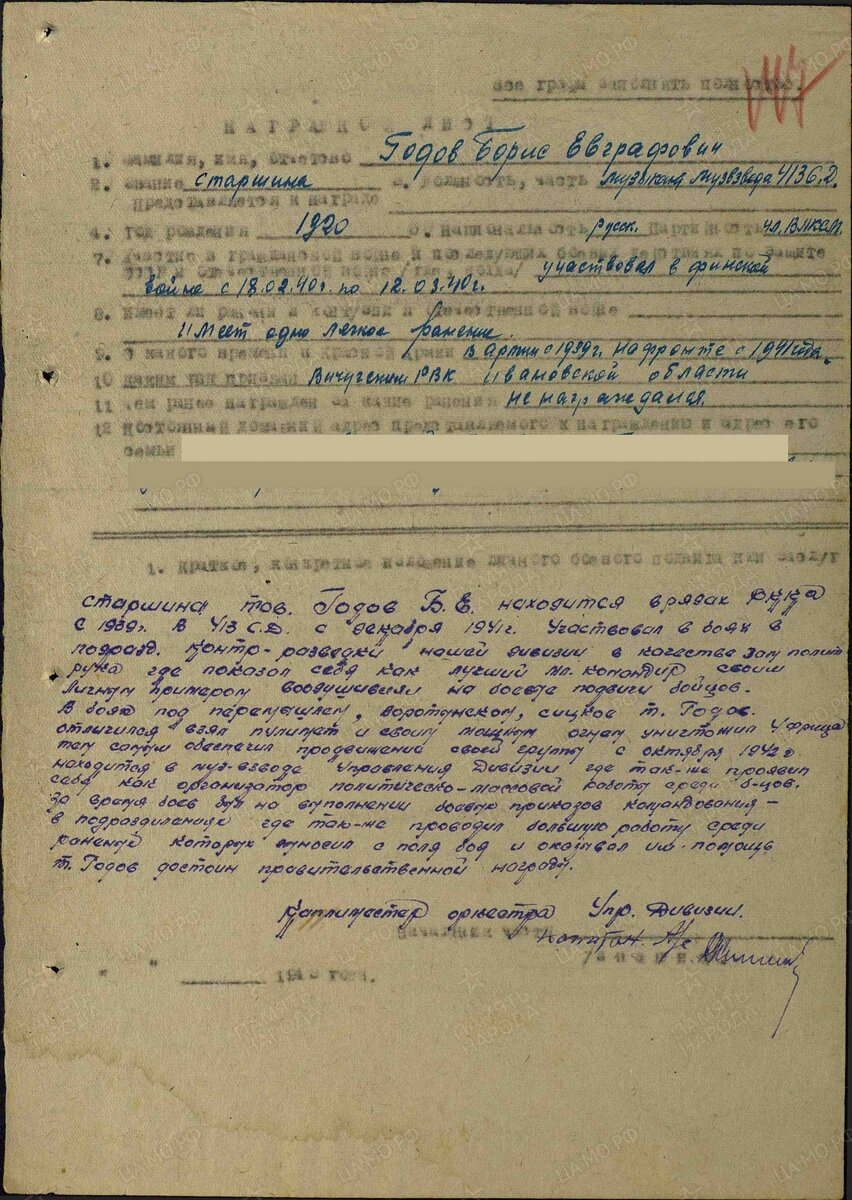 все графы заполнить полностью.
НАГРАДНОЙ ЛИСТ
1. Фамилия, имя, отчество Годов Борис Евграфович
2. Звание Старшина 3. Должность, часть музыкант Музвзвода 413 с.д.
представляется к награде
4. Год рождения 1920 5. Национальность русск. Партийность чл. ВЛКСМ.
7. Участие в гражданской войне и последующих боевых действиях по защите
СССР и отечественной войне /где, когда/ участвовал в финской
войне с 18.02.40г. по 12.03.40г.
8. Имеет ли ранения и контузии в отечественной войне
Имеет одно легкое ранение.
9. С какого времени в Красной Армии В армии с 1939г. на фронте с 1941 года.
10 Каким РВК призван Вичугским РВК Ивановской области
11 Чем ранее награжден за какие ранения не награждался.
12 Постоянный домашний адрес представляемого к награждению и адрес его
семьи
1. Краткое, конкретное изложение личного боевого подвига или заслуг
старшина тов. Годов Б.Е. находится в рядах РККА
с 1939г. В 413 С.Д. с декабря 1941г. Участвовал в боях в
подразд. контр-разведки нашей дивизии в качестве зам полит
рука где показал себя как лучший мл. командир своим
личным примером воодушевлял на боевые подвиги бойцов.
В боях под перемышлем, воротынском, сицкое т. Годов.
отличился взял пулимет и своим мощным огнем уничтожил 4 фрица
тем самым обеспечил продвижений своей группы с октября 1942г.
находится в муз-взводе Управления Дивизии где так-же проявил
себя как организатор политическо-массовой работы среди б-цов.
За время боев был на выполнении боевых приказов командования-
в подразделениях где так-же проводил большую работу среди
раненых которых выносил с поля боя и оказывал им помощь
т. Годов достоин правительственной награды.
Капельместер оркестра Упр. Дивизии.
Начальник части капитан
194 года.
ЦАМО.РФ
ПАМЯТЬ НАРОДА